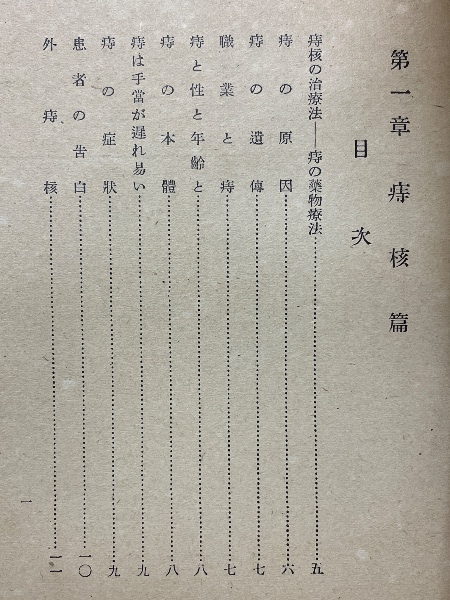 第一章 痔核篇
目次
痔核の治療法――痔の藥物療法……五
痔の原因……六
痔の遺傳……七
職業と痔……七
痔と性と年齡と……八
痔の本體……八
痔は手當が遲れ易い……九
痔の症狀……九
患者の告白……一〇
外痔核……一一
一